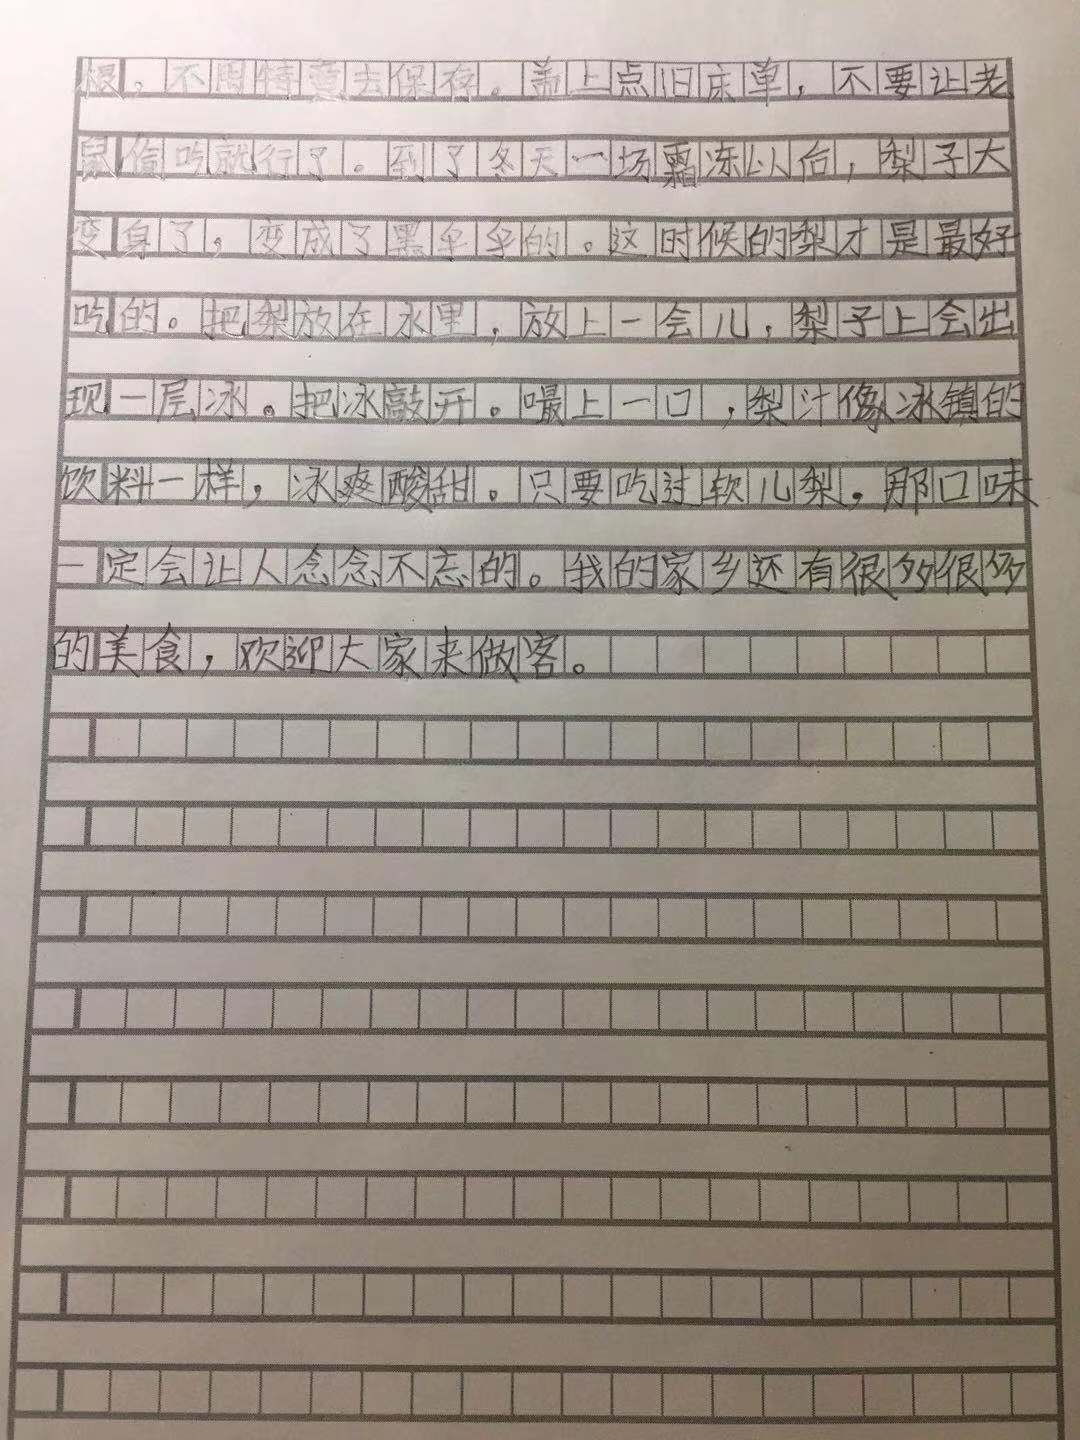 不用特意去保存。盖上点旧床单，不要让老
鼠偷吃就行了。到了冬天一场霜冻以后，梨子大
变身了，变成了黑乎乎的。这时候的梨才是最好
吃的。把梨放在水里，放上一会儿，梨子上会出
现一层冰。把冰敲开。嘬上一口，梨汁像冰镇的
饮料一样，冰爽酸甜。只要吃过软儿梨，那口味
一定会让人念念不忘的。我的家乡还有很多很多
的美食，欢迎大家来做客。